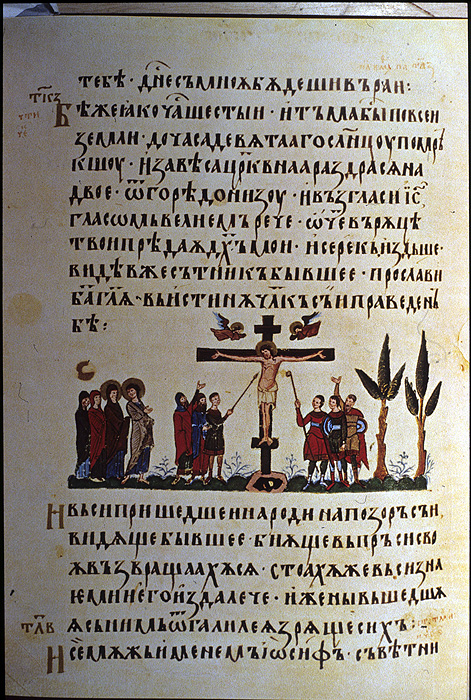 тебѣ · дн҃есъ мноѫ бѫдеши въ раи :
Бѣ же ꙗко ч҃а шестыи · и тъма бы по всеи
земли · до часа девѧтаго сл҃нцоу помрь
кшоу · и завѣса црк҃внаа раздра сѧ на
двое · ѿ горѣ до низоу · и възгласи і҃с
гласѡмь велиемь рече · ѡ҃че в рѫцѣ
твои прѣдаѫ дх҃ъ мои · и се рекь издьше ·
видѣв же сътникъ бывшее · прослави
б҃а гл҃ѧ · въ истинѫ чл҃къ съи праведень
бѣ :
И вьси пришедшеи народи на позоръ сьи,
видѧще бывшее · биѫще въ пръси сво
ѫ възвращаахѫ сѧ · стоахѫ же вьси зна
емии его издалече · и жены въшедшѫ
ѧ съ нимь ѿ галилеѧ зрѧще сихъ :
И се мѫжь именемъ іѡсифъ · съвѣтни